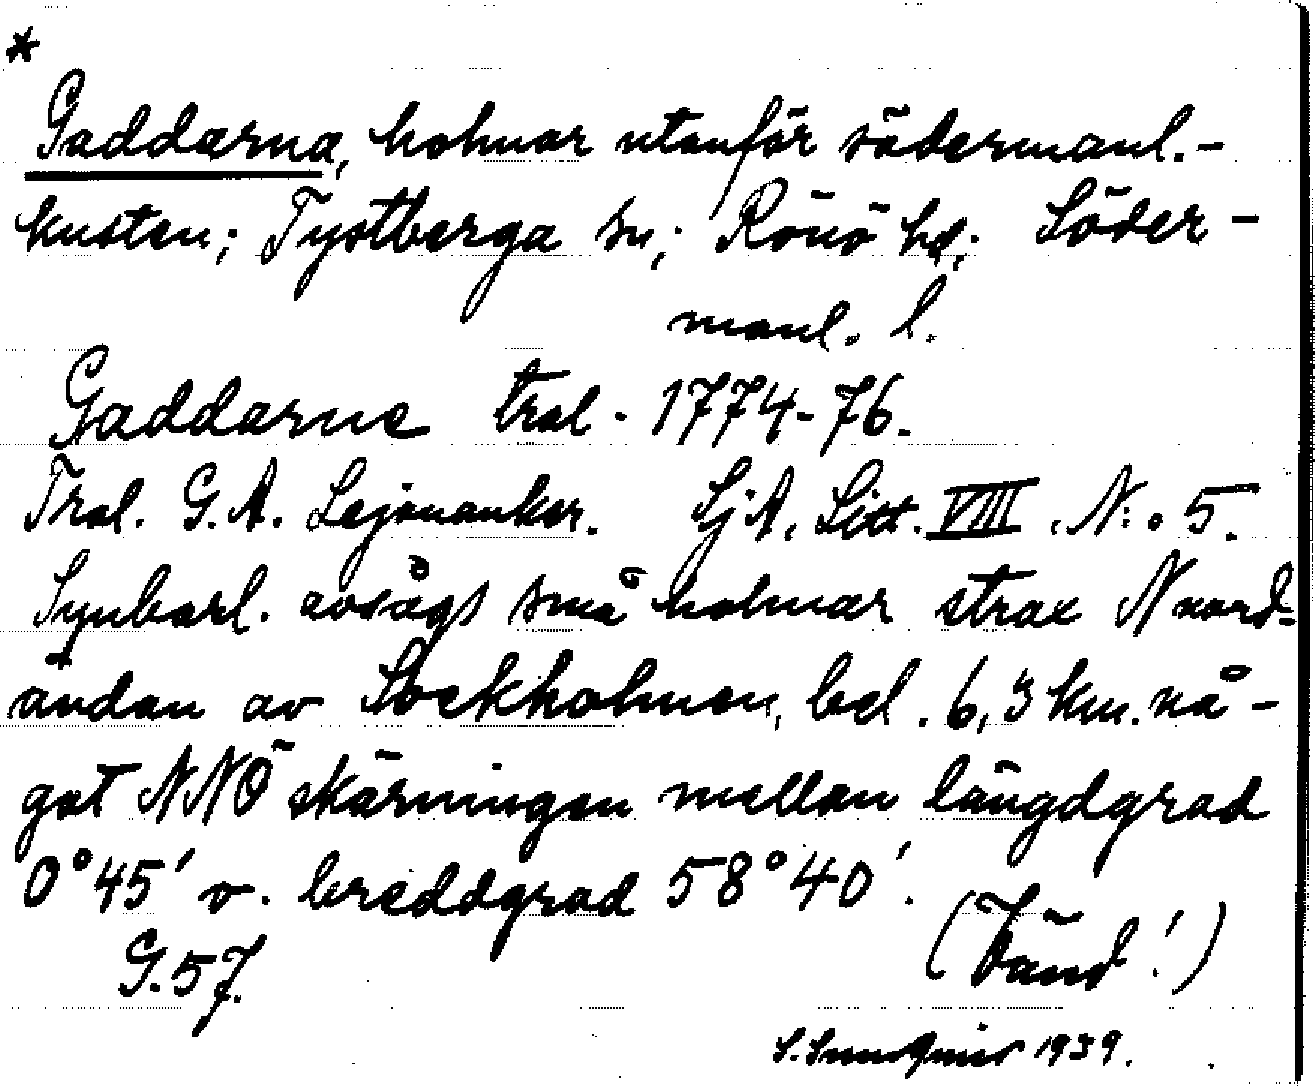 *
Gaddarna, holmar utanför södermanl.-
kusten; Tystberga sn; Rönö hd; Söder-
manl. l.
Gaddarne tral - 1774-76.
Tral. G.A. Lejonanker. SjA, Litt. VIII. N:o 5.
Synbarl. avsågs små holmar strax N nord-
ändan av Stockholmen, bel. 6,3 km. nå-
got NNÖ skärningen mellan längdgrad
0°45' v. breddgrad 58°40'.
G.57. (Vänd!)
S. Sundqvist 1939.